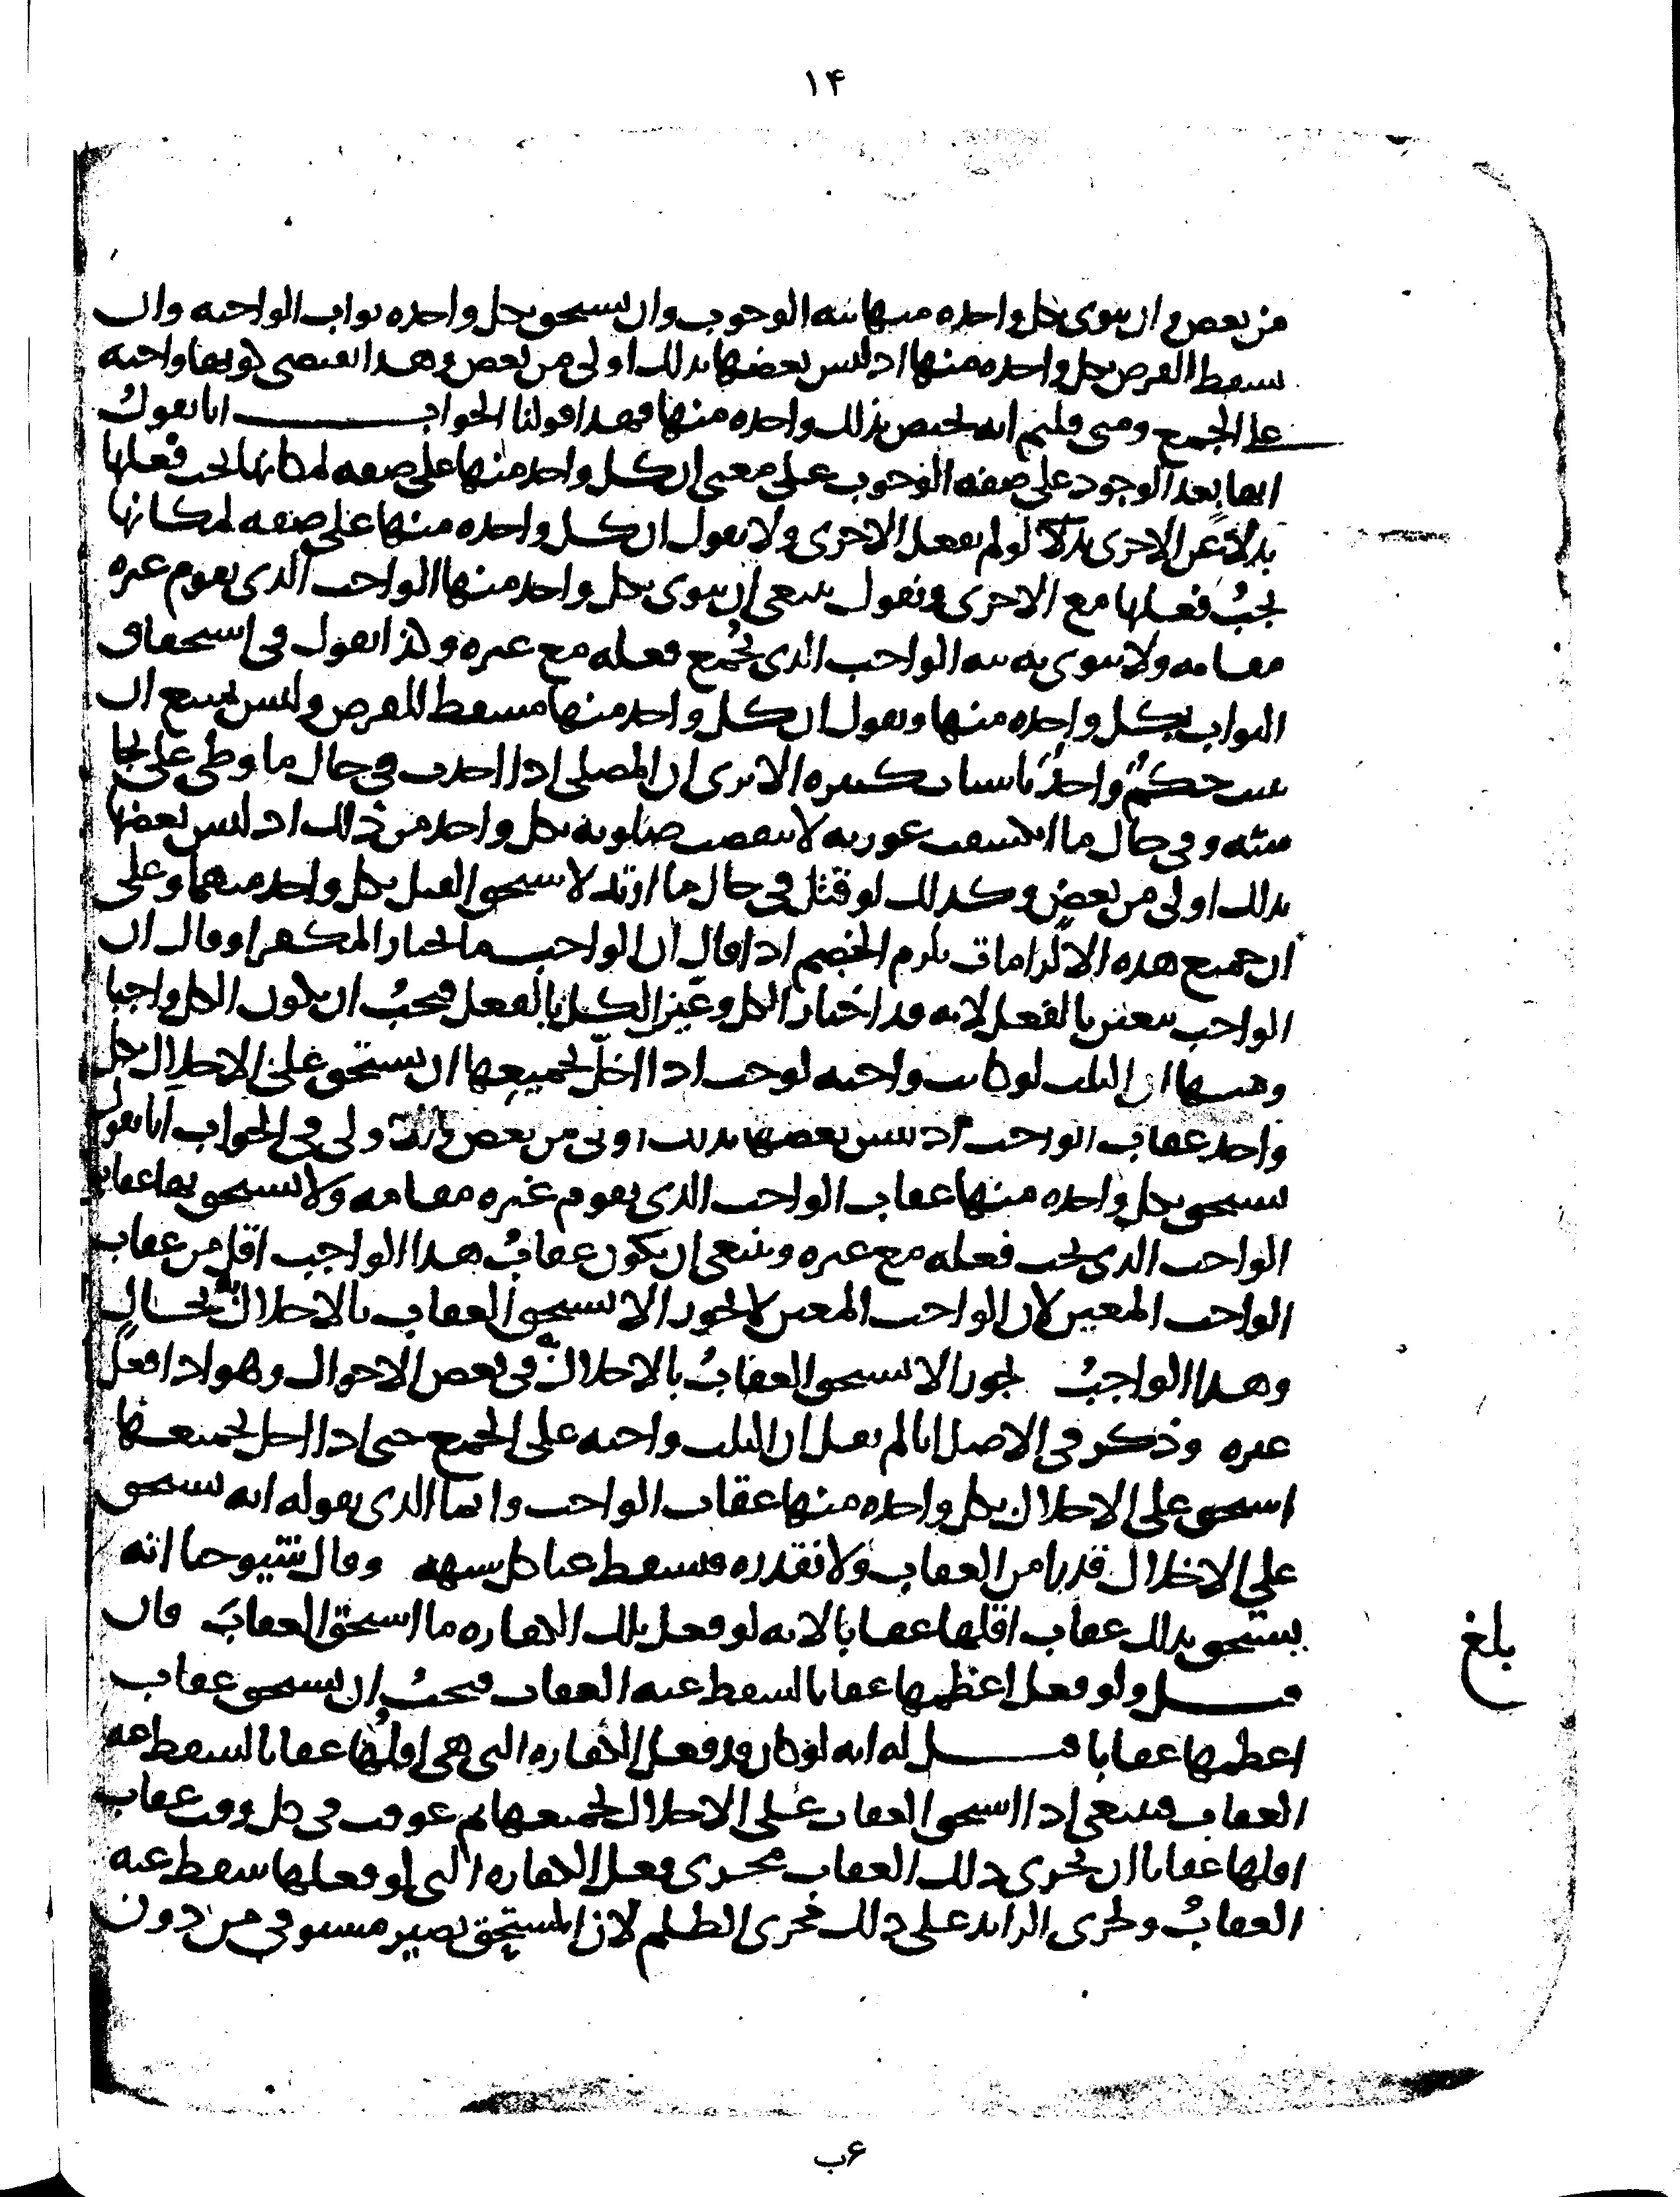 ۱۴
من بعض وان ينوى بكل واحده منها نيه الوجوب وان يستحق بكل واحده ثواب الواجبه وان
يسقط الفرض بكل واحده منها اذ ليس بعضها بذلك اولى من بعض وهذا يقتضى كونها واجبه
على الجمع ومتى قلتم انه يختص بذلك واحده منها فهذا قولنا الجواب انا نقول
انها بعد الوجود على صفه الوجوب على معنى ان كل واحد منها على صفه لمكانها يجب فعلها
بدلاً عن الاخرى بدلاً لو لم يفعل الاخرى ولا نقول ان كل واحده منها على صفه لمكانها
يجبُ فعلها مع الاخرى ونقول ينبغى ان ينوى بكل واحد منها الواجب الذى يقوم غيره
مقامه ولا ينوى به نيه الواجب الذى يُجمع فعله مع غيره وكذا نقول فى استحقاق
الثواب بكل واحده منها ونقول ان كل واحد منها مسقط للفرض وليس يمتنع ان
يثبت حكمٌ واحدٌ باسباب كثيره الا ترى ان المصلى اذا احدث فى حال ما وطى على نجا
سته وفى حال ما انكشفت عورته لا ينتقض صلوته بكل واحد من ذلك اذ ليس بعضها
بذلك اولى من بعضٍ وكذلك لو قتل فى حال ما ارتد لا يستحق القتل بكل واحد منهما وعلى
ان جميع هذه الالزامات يلزم الخصم اذا قال ان الواجب ما اختار المكفر او قال ان
الواجب يتعين بالفعل لانه قد اختار الكل وعيّن الكل بالفعل فيجبُ ان يكون الكل واجبا
ومنها ان الثلث لو كانت واجبه لوجب اذا اخلّ بجميعها ان يستحق على الاخلال بكل
واحد عقاب الواجب اذ ليس بعضها بذلك اولى من بعض فى الجواب انا نقول
يستحق بكل واحده منها عقاب الواجب الذى يقوم غيره مقامه ولا يستحق بها عقاب
الواجب الذى يجب فعله مع غيره وينبغى ان يكون عقابُ هذا الواجب اقل من عقاب
الواجب المعين لان الواجب المعين لا يجوز الا يستحق العقاب بالاخلال به بحالٍ
وهذا الواجبُ يجوز الا يستحق العقابُ بالاخلال به فى بعض الاحوال وهو اذا فعل
غيره وذكر فى الاصل انا لم نقل ان الثلث واجبه على الجمع حتى اذا اخل بجميعها
استحق على الاخلال بكل واحده منها عقاب الواجب وانما الذى نقوله انه يستحق
على الاخلال قدرا من العقاب ولا نقدره فيسقط عنا كل شبهه وقال شيوخنا انه
يستحق بذلك عقاب اقلها عقابا لانه لو فعل تلك الكفاره ما استحق العقابَ فان
قيل ولو فعل اعظمها عقابا لسقط عنه العقاب فيجبُ ان يستحق عقاب
اعظمها عقابا قيل له انه لو كان قد فعل الكفاره التى هى اقلها عقابا لسقط عنه
العقاب فينبغى اذا استحق العقاب على الاخلال بجميعها ثم عوقب فى كل وقت عقاب
اقلها عقابا ان يجرى ذلك العقاب مجرى فعل الكفاره التى لو فعلها سقط عنه
العقابُ ويجرى الزايد على ذلك مجرى الظلم لان المستحق يصير مستوفى من دون
بلغ
۶ب